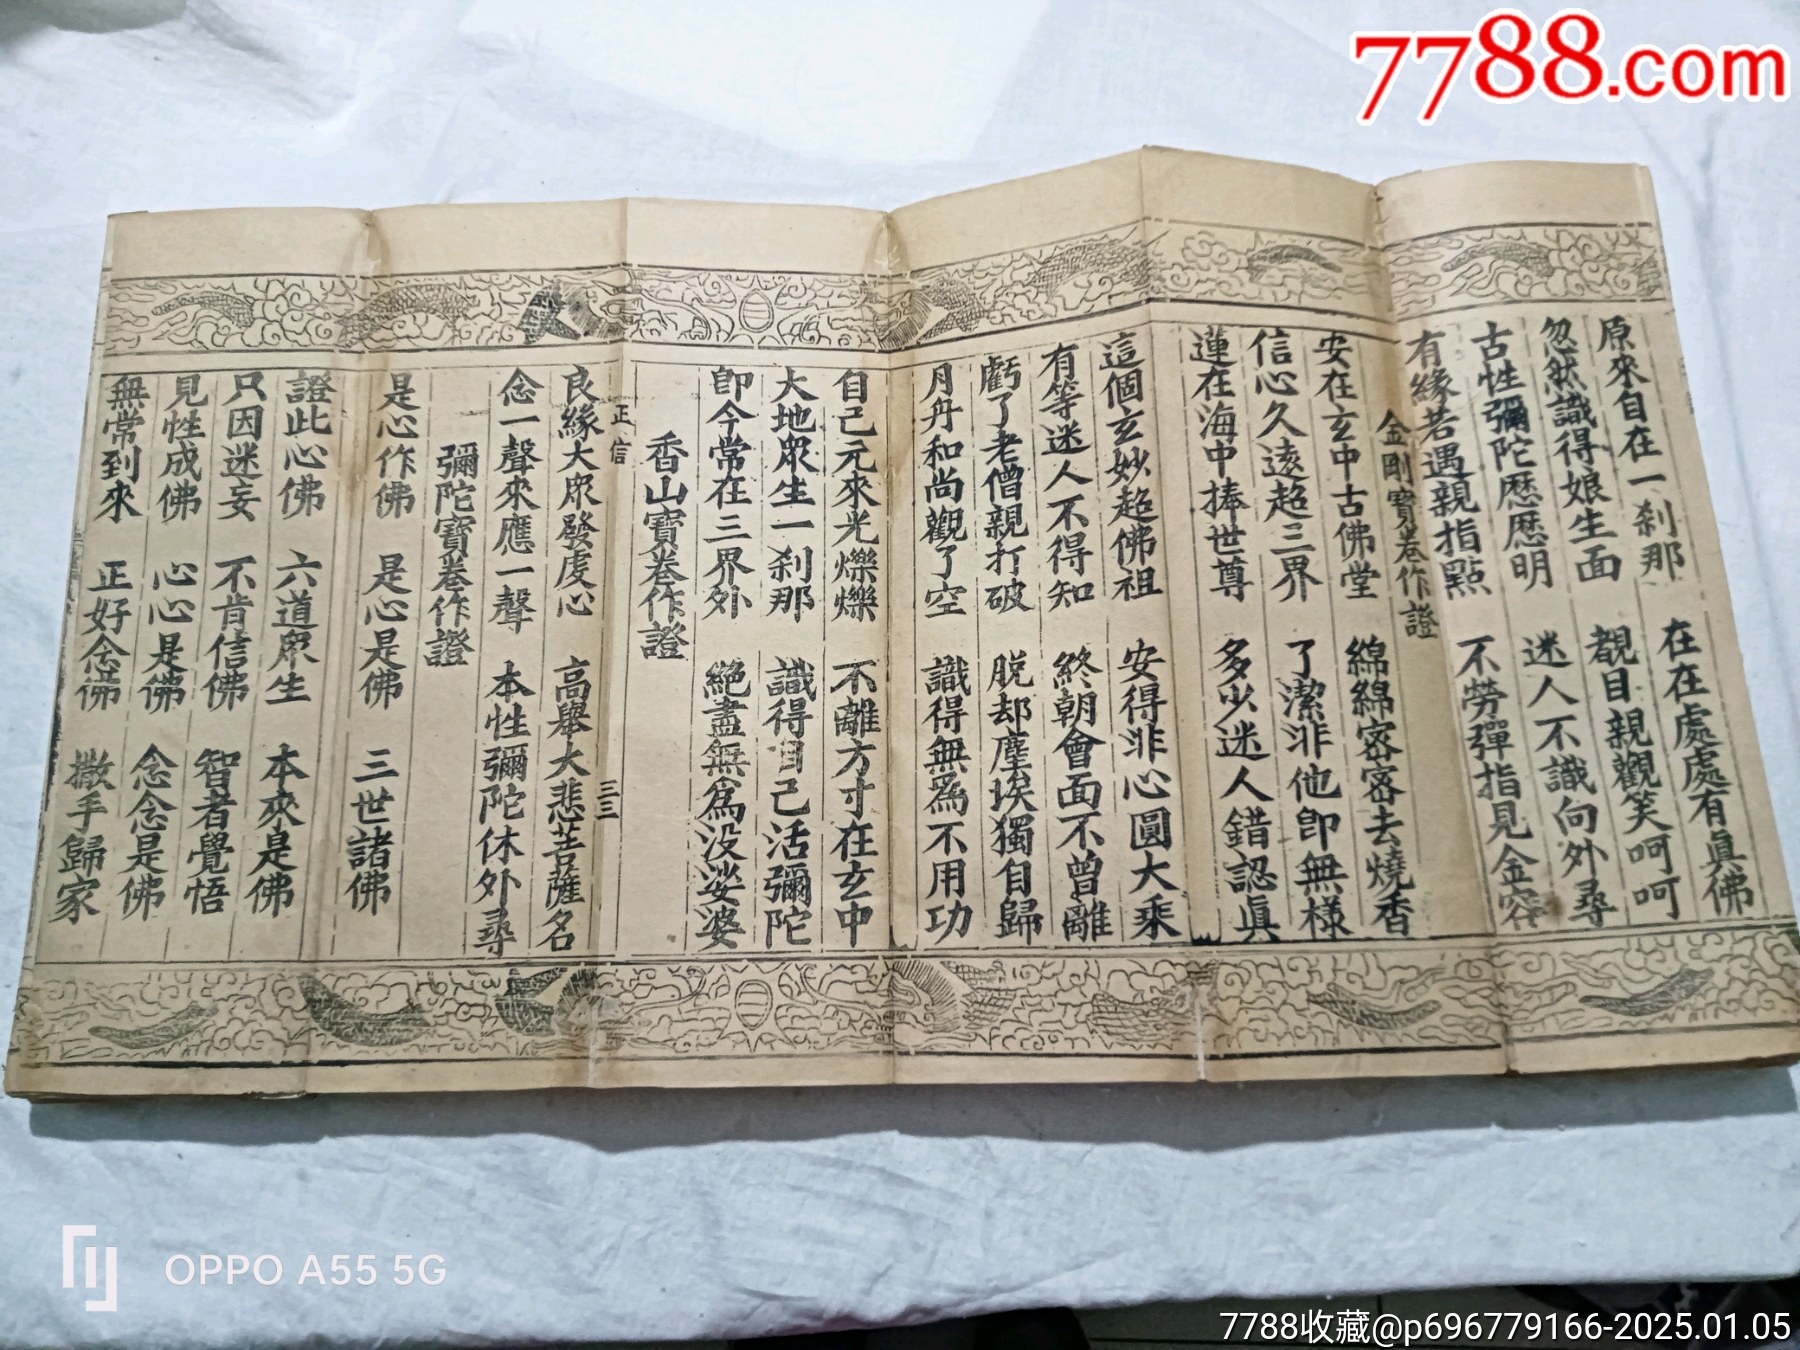 7788.com
原來自在一刹那 在在處處有眞佛
忽然識得娘生面 覩目親觀笑呵呵
古性彌陀歷歷明 迷人不識向外尋
有緣若遇親指點 不勞彈指見金容
金剛寶卷作證
安在玄中古佛堂 綿綿密密去燒香
信心久遠超三界 了潔非他卽無樣
蓮在海中捧世尊 多少迷人錯認眞
這個玄妙超佛祖 安得非心圓大乘
有等迷人不得知 終朝會面不曾離
虧了老僧親打破 脫却塵埃獨自歸
月丹和尚觀了空 識得無爲不用功
自己元來光爍爍 不離方寸在玄中
大地眾生一刹那 識得自己活彌陀
卽今常在三界外 絕盡無爲没娑婆
香山寶卷作證
正信 三三
良緣大眾發虔心 高舉大悲菩薩名
念一聲來應一聲 本性彌陀休外尋
彌陀寶卷作證
是心作佛 是心是佛 三世諸佛
證此心佛 六道眾生 本來是佛
只因迷妄 不肯信佛 智者覺悟
見性成佛 心心是佛 念念是佛
無常到來 正好念佛 撒手歸家
OPPO A55 5G
7788收藏@p696779166-2025.01.05